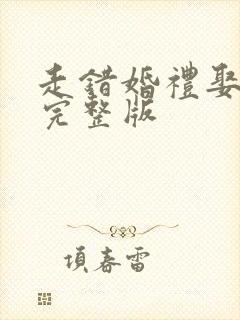 走錯婚禮娶
完整版
項春雷